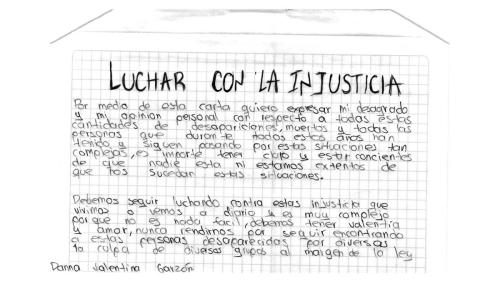 LUCHAR CON LA INJUSTICIA
Por medio de esta carta quiero expresar mi desagrado
y mi opinion personal con respecto a todas estas
cantidades de desapariciones, muertos y todas las
personas que durante todos estos años han
tenido y siguen pasando por estas situaciones tan
complejas, es importe tener claro y estar concientes
de que nadie esta ni estamos extentos de
que nos sucedan estas situaciones.
Debemos seguir luchando contra estas injusticia que
vivimos o vemos a diario y es muy complejo
porque no es nada facil, debemos tener valentia
y amar, nunca rendirnos por seguir encontrando
a estas personas desaparecidas por diversas
la culpa de diversos grupos al margen de la ley
Danna Valentina Garzón